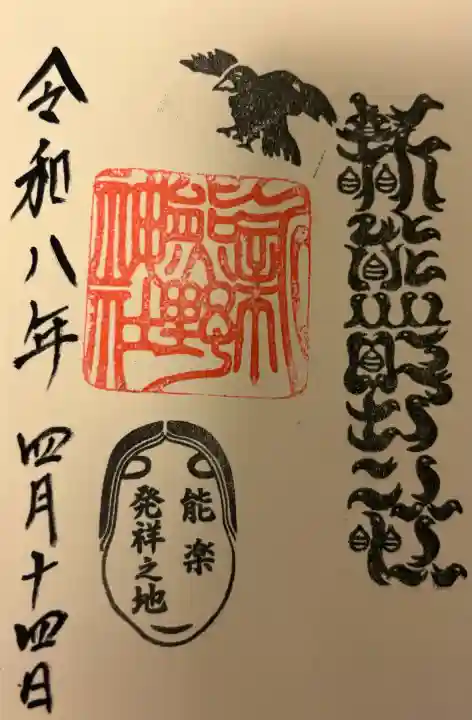 新熊野
新熊野神社
能楽
発祥之地
令和八年 四月十四日